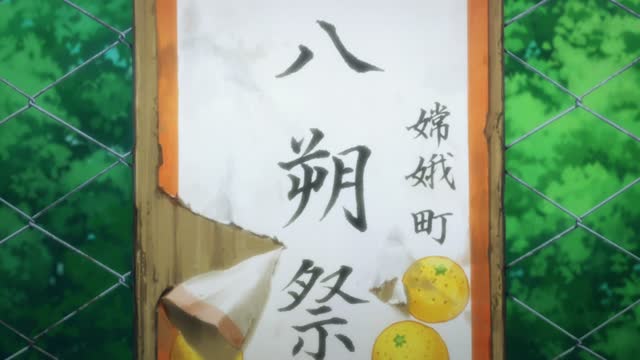 嫦娥町
八朔祭